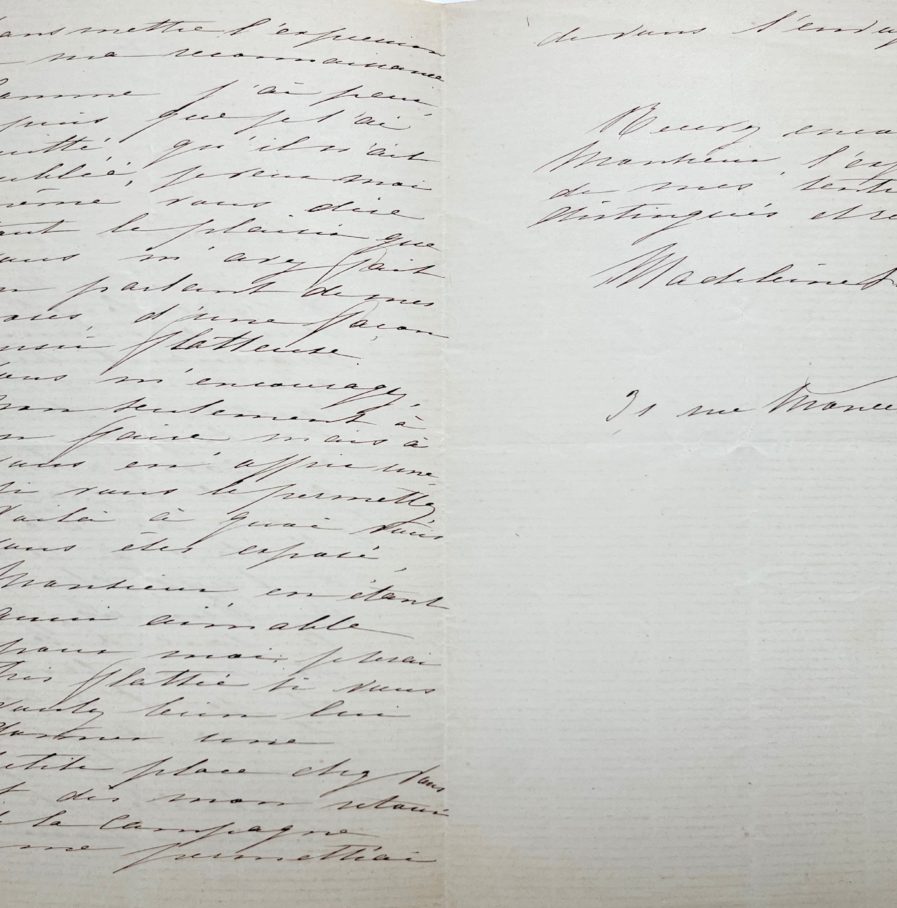 ansmettre l'expression
ma reconnaissance
Comme j'ai peur
puis que je l'ai
uitté qu'il n'ait
ublié, je veux moi
même vous dire
tout le plaisir que
ous m'avez fait
n parlant de mes
d'une façon
flatteuse
ous m'encouragez,
non seulement à
n faire mais à
ous en offrir une
si vous le permettez
Voilà à quoi
ous êtes exposé,
Monsieur en étant
aimable
pour moi, je serai
très flattée si vous
voulez bien lui
donner une
etite place chez vous
t dès mon retour
la campagne
me permettrai
de vous l'envoy
Recevez enco
Monsieur l'exp
de mes senti
distingués et re
Madeleine
31 rue Monce